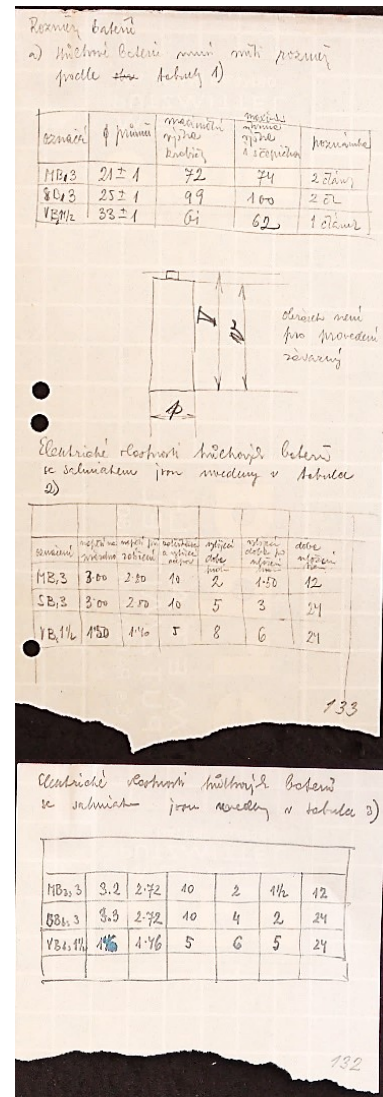 Rozměry baterií
a) tužkové baterie musí míti rozměry
podle tabulky 1)
označení φ průměr maximální výška krabičky výška s čepičkou poznámka
MB,3 21±1 72 74 2 články
SB,3 25±1 99 100 2 čl
VB,1½ 33±1 61 62 1 článek
V v
obrázek není
pro provedení
závazný
φ
Elektrické vlastnosti tužkových baterií
se salmiakem jsou uvedeny v tabulce
2)
označení napětí na prázdno napětí při zatížení vybíjecí doba doba
MB,3 3.00 2.50 10 2 1.50 12
SB,3 3.00 2.50 10 5 3 24
VB,1½ 1.50 1.40 5 8 6 24
133
Elektrické vlastnosti tužkových baterií
se salmiakem jsou uvedeny v tabulce 3)
3 3.2 2.72 10 2 1½ 12
3 3.3 2.72 10 4 2 24
1½ 1.46 5 6 5 24
132